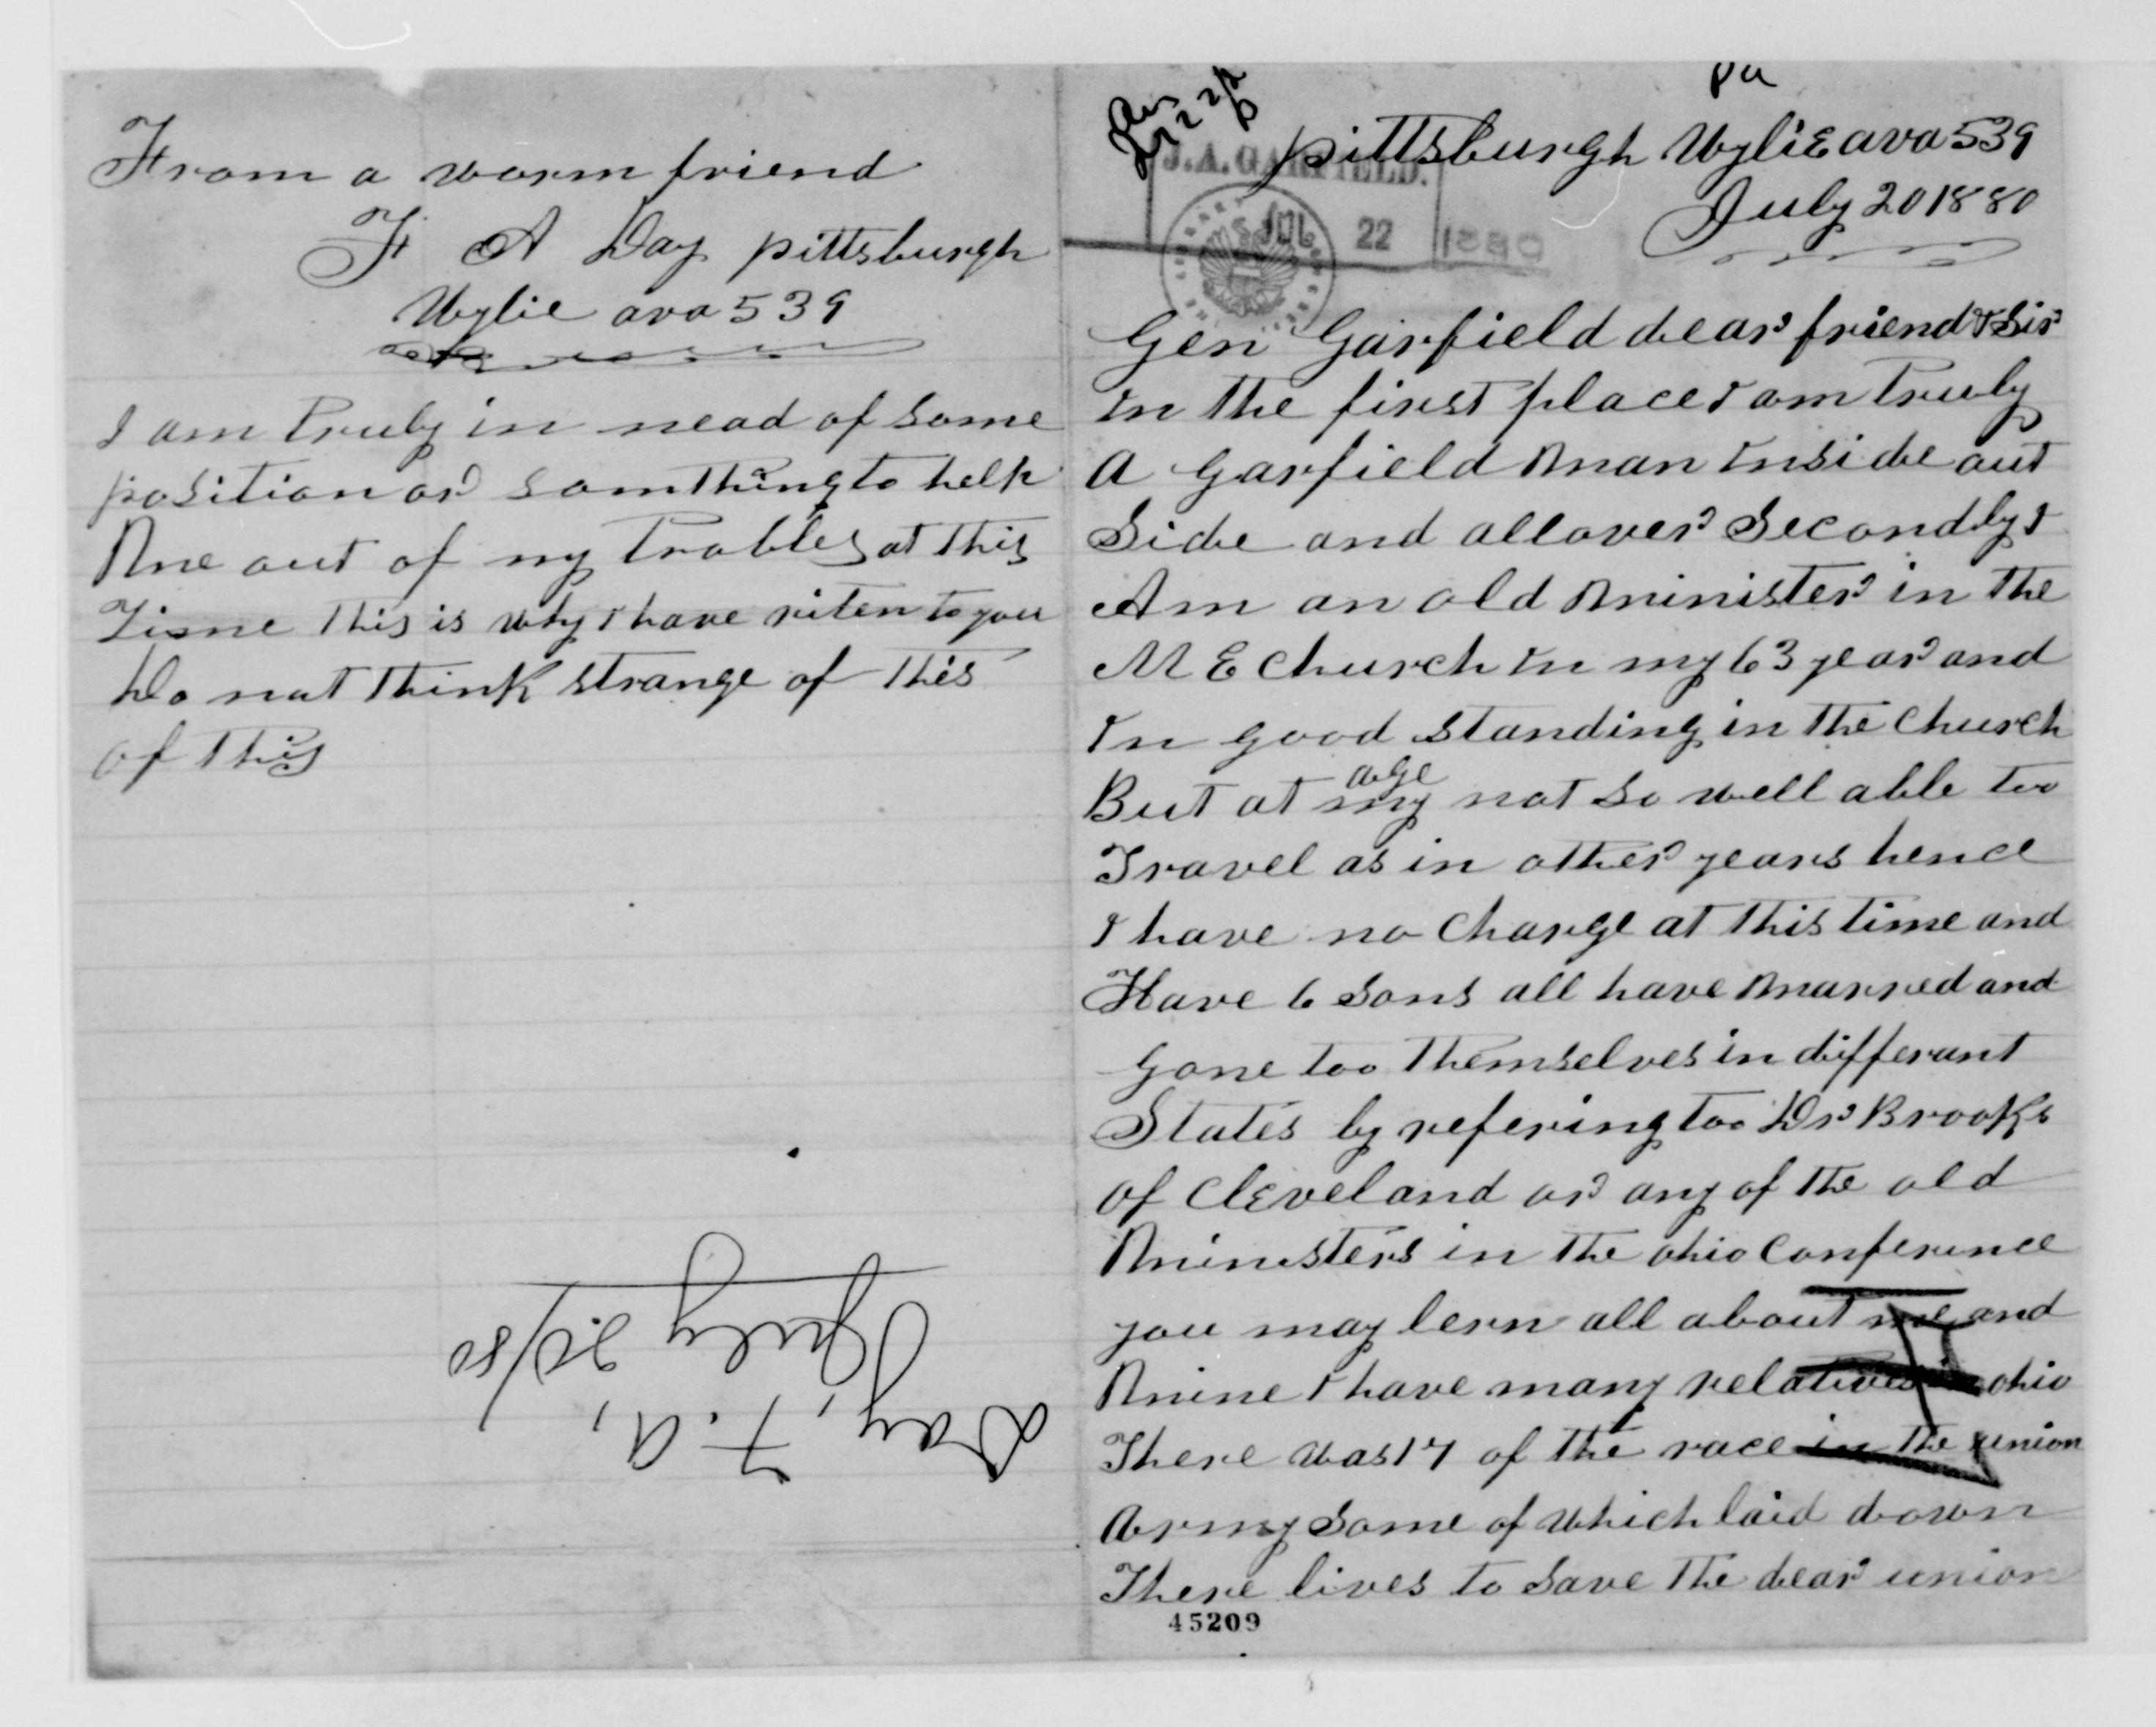 From a worm friend
F A Day pittsburgh
Wylie ava 539
I am truly in nead of some
position or somthing to help
Me out of my trobles at this
Time this is why I have riten to you
Do not think strange of this
of this
Day, F. A,
July 20/80
Pa
Ans
July 22/80
pittsburgh WyliE ava 539
July 20 1880
J.A. GARFIELD.
JUL 22 1880
Gen Garfield dear friend & Sir
In the first place I am truly
A Garfield Man Inside out
Side and allover Secondly I
Am an old Minister in the
M E Church In my 63 year and
In good standing in the Church
But at my age not so well able too
Travel as in other years hence
I have no Charge at this time and
Have 6 Sons all have Marred and
Gone too themselves in differant
States by refering too Dr Brooks
of ClEveland or any of the old
Ministers in the ohio Conference
you may lern all about me and
Mine I have many relatives in ohio
There was 17 of the race in the union
Army Some of which laid down
There lives to Save the dear union
45209